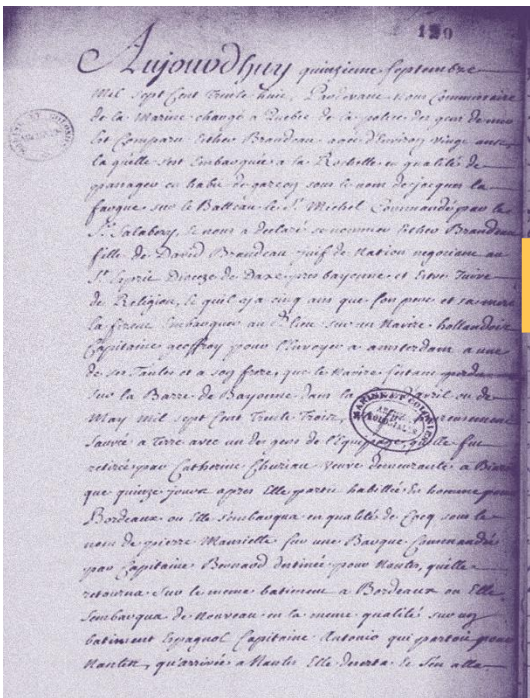 129
Aujourdhuy quinzieme septembre
Mil sept Cent Trente huit, Pardevant Nous Commissaire
de la Marine chargé a Quebec de la police des gens de mer
Est Comparu Esther Brandeau agée d'Environ vingt ans
laquelle s'est Embarquée a la Rochelle en qualité de
passager en habit de garçon sous le nom de jacques la
fargue sur le Batteau le St. Michel Commandé par le
Sr. Salabery, & nous a declaré se nommer Esther Brandeau
fille de David Brandeau juif de Nation negociant au
St. Esprit Dioceze de Daxe pres bayonne et Estre Juive
de Religion, & quil y a cinq ans que son pere et sa mere
la firent Embarquer au d. lieu sur un Navire hollandois
Capitaine geoffroy pour l'Envoyer a amsterdam a une
de ses Tantes et a son frere, que le Navire s'etant perdu
sur la Barre de Bayonne dans la avril ou de
May Mil sept Cent Trente Trois,
Sauvé a Terre avec un des gens de l'Equipage, qu'elle fut
retirée par Catherine Churiau veuve demeurante a
que quinze jours apres Elle partit habillée En homme pour
Bordeaux ou Elle s'embarqua en qualité de Cocq sous le
nom de pierre Mausiette sur une Barque Commandée
par Capitaine Bernard destinée pour Nantes, quelle
retourna sur le meme batiment a Bordeaux ou Elle
s'embarqua de Nouveau en la meme qualité sur un
batiment Espagnol Capitaine Antonio qui partoit pour
Nantes, qu'arrivée a Nantes Elle deserta & s'en alla
MARINE ET COLONIES